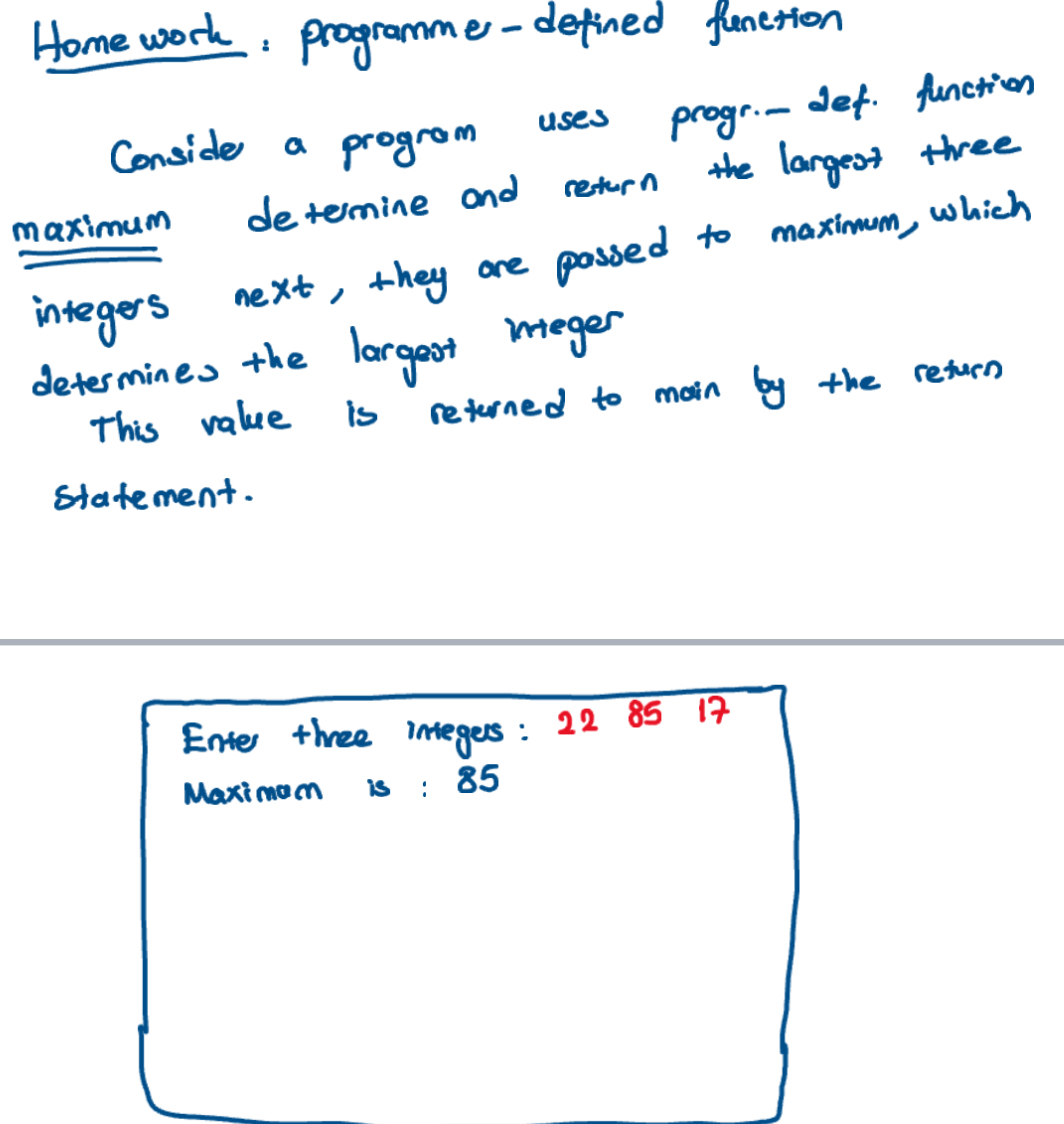 Homework : programmer-defined function
Consider a program uses progr.- def. function
maximum determine and return the largest three
integers next, they are passed to maximum, which
determines the largest integer
This value is returned to main by the return
statement.
Enter three integers : 22 85 17
Maximum is : 85